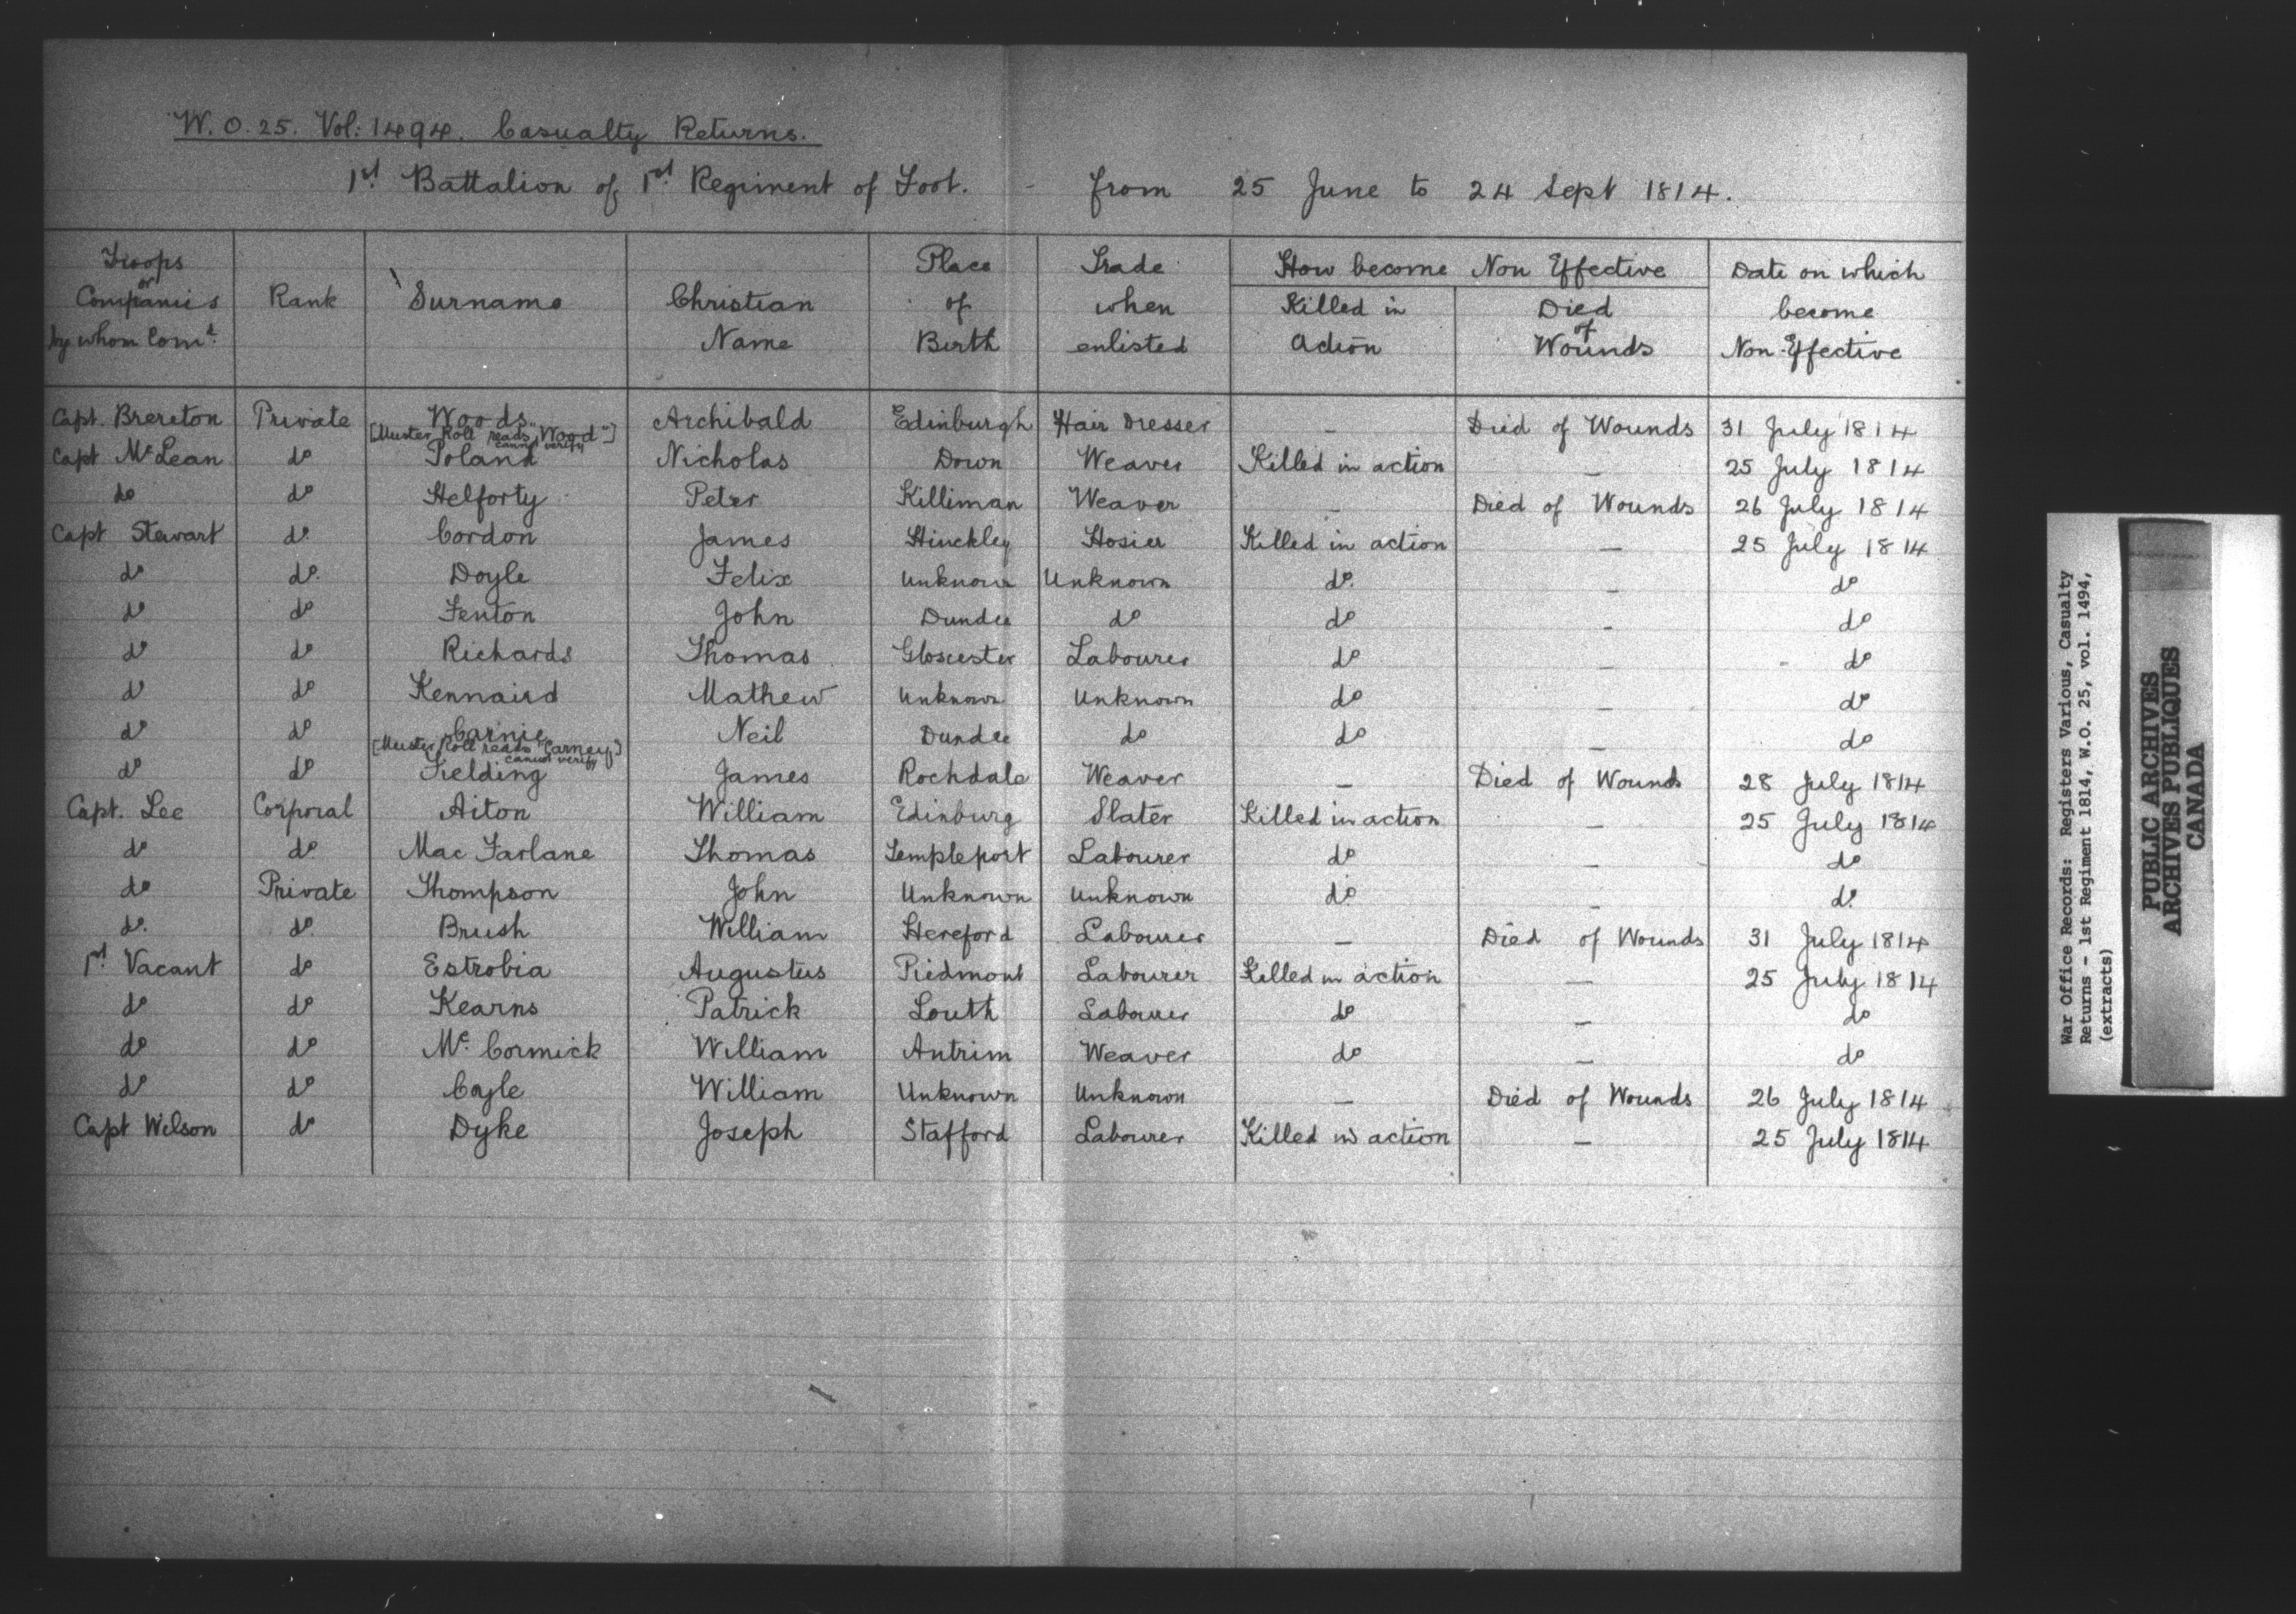 W. O. 25. Vol: 1494. Casualty Returns.
1st Battalion of 1st Regiment of Foot. - from 25 June to 24 Sept 1814.
Troops or Companies by whom Comd. | Rank | Surname | Christian Name | Place of Birth | Trade when enlisted | How become Non Effective | Date on which become Non-Effective
Killed in Action | Died of Wounds
Capt. Brereton | Private | Woods | Archibald | Edinburgh | Hair Dresser | - | Died of Wounds | 31 July 1814
[Muster Roll reads "Wood"] cannot verify
Capt McLean | do | Poland | Nicholas | Down | Weaver | Killed in action | - | 25 July 1814
do | do | Helforty | Peter | Killiman | Weaver | - | Died of Wounds | 26 July 1814
Capt Stewart | do | Cordon | James | Hinckley | Hosier | Killed in action | - | 25 July 1814
do | do. | Doyle | Felix | Unknown | Unknown | do. | - | do
do | do | Fenton | John | Dundee | do | do | - | do
do | do | Richards | Thomas | Gloscester | Labourer | do | - | do
do | do | Kennaird | Mathew | Unknown | Unknown | do | - | do
do | do | Carnie | Neil | Dundee | do | do | - | do
[Muster Roll reads "Carney"] cannot verify
do | do | Fielding | James | Rochdale | Weaver | - | Died of Wounds | 28 July 1814
Capt. Lee | Corporal | Aiton | William | Edinburg | Slater | Killed in action | - | 25 July 1814
do | do | Mac Farlane | Thomas | Templeport | Labourer | do | - | do
do | Private | Thompson | John | Unknown | Unknown | do | - | do
do. | do. | Brush | William | Hereford | Labourer | - | Died of Wounds | 31 July 1814
1st Vacant | do | Estrobia | Augustus | Piedmont | Labourer | Killed in action | - | 25 July 1814
do | do | Kearns | Patrick | Louth | Labourer | do | - | do
do | do | Mc Cormick | William | Antrim | Weaver | do | - | do
do | do | Coyle | William | Unknown | Unknown | - | Died of Wounds | 26 July 1814
Capt Wilson | do | Dyke | Joseph | Stafford | Labourer | Killed in action | - | 25 July 1814
War Office Records: Registers Various, Casualty
Returns - 1st Regiment 1814, W.O. 25, vol. 1494,
(extracts)
PUBLIC ARCHIVES
ARCHIVES PUBLIQUES
CANADA